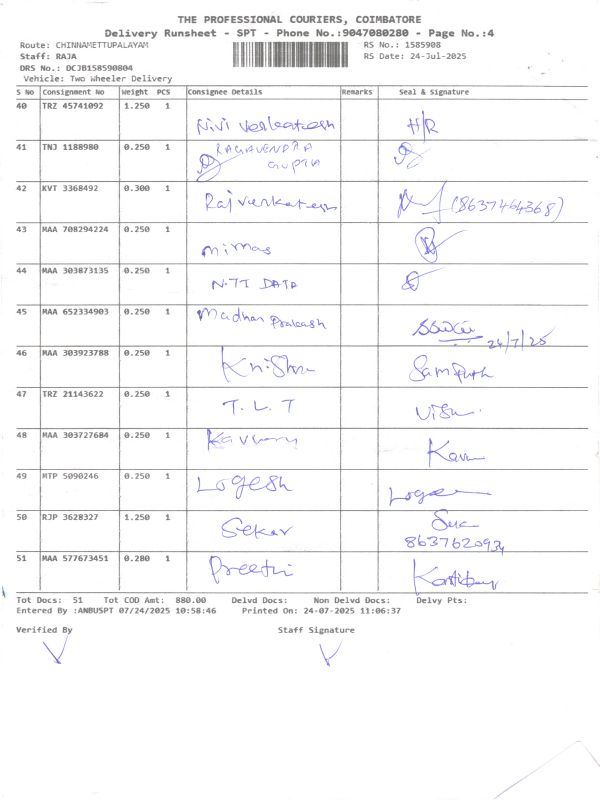 THE PROFESSIONAL COURIERS, COIMBATORE
Delivery Runsheet - SPT - Phone No.:9047080280 - Page No.:4
Route: CHINNAMETTUPALAYAM RS No.: 1585908
Staff: RAJA RS Date: 24-Jul-2025
DRS No.: DCJB158590804
Vehicle: Two Wheeler Delivery
S No Consignment No Weight PCS Consignee Details Remarks Seal & Signature
40 TRZ 45741092 1.250 1
Nivi Venkatesh H/R
41 TNJ 1188980 0.250 1 RAGAVENDRA
GUPTA
42 KVT 3368492 0.300 1
Rajvenkatesh (8637464368)
43 MAA 708294224 0.250 1
mimas
44 MAA 303873135 0.250 1
NTT DATA
45 MAA 652334903 0.250 1
Madhan Prakash
24/7/25
46 MAA 303923788 0.250 1
Krishna Sampath
47 TRZ 21143622 0.250 1
T.L.T Visu
48 MAA 303727684 0.250 1
49 MTP 5090246 0.250 1
Logesh
50 RJP 3628327 1.250 1
Sekar
51 MAA 577673451 0.280 1
Preethi
Tot Docs: 51 Tot COD Amt: 880.00 Delvd Docs: Non Delvd Docs: Delvy Pts:
Entered By :ANBUSPT 07/24/2025 10:58:46 Printed On: 24-07-2025 11:06:37
Verified By Staff Signature